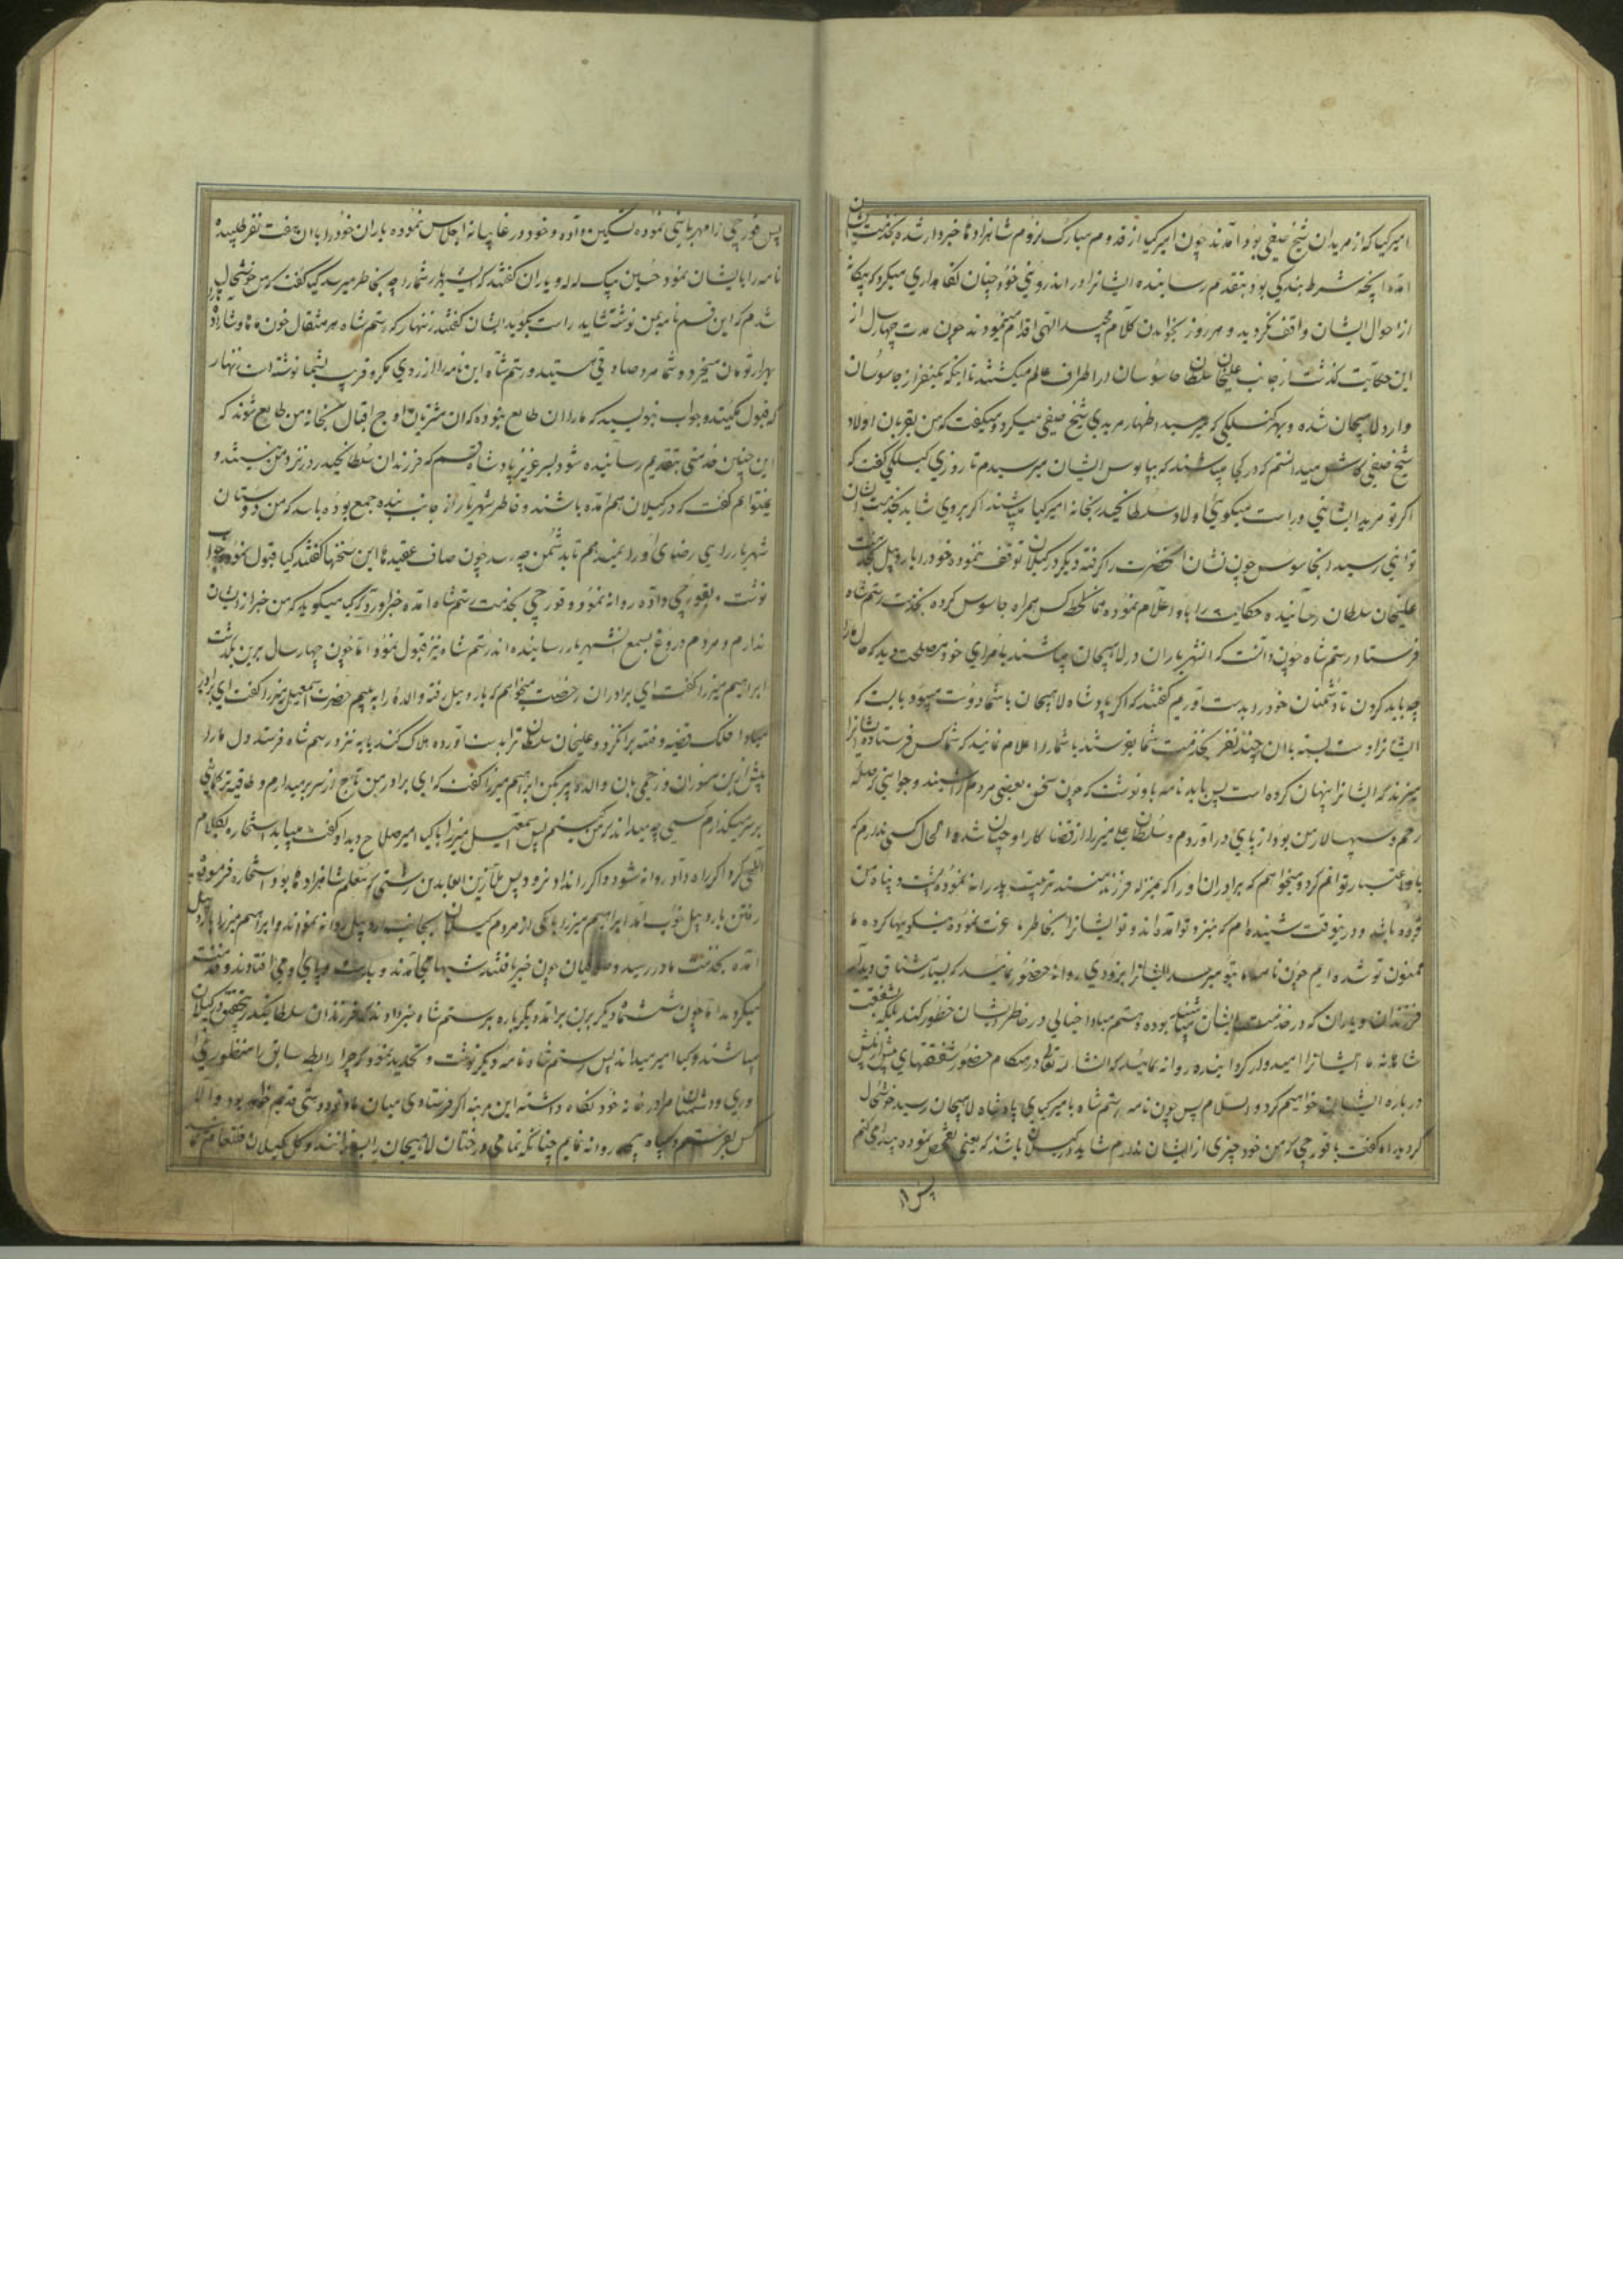 امیر کیا که از مریدان شیخ صیفی بود آمدند چون امیر کیا از قدوم مبارک لزوم شاهزاده‌ها خبردار شده بخدمت ایشان
آمده آنچه شرط بندگی بود بتقدیم رسانیده ایشانرا در اندرونی خود چنان نگاهداری میکرد که
از احوال ایشان واقف نگردید و هر روز بخواندن کلام مجید الهی اقدام مینمودند چون مدت چهار سال از
این حکایت گذشت از جانب علیخان سلطان جاسوسان در اطراف عالم میگشتند تا اینکه یکنفر از جاسوسان
وارد لاهیجان شده و بهر کس که میرسید اظهار مریدی شیخ صیفی میکرد و میگفت که من بقربان اولاد
شیخ صیفی کاش میدانستم که در کجا میباشند که بپابوس ایشان میرسیدم تا روزی گیلکی گفت که
اگر تو مرید ایشانی و راست میگویی اولاد سلطان حیدر بخانه امیر کیا میباشند اگر بروی شاید بخدمت ایشان
توانی رسید آن جاسوس چون نشان آنحضرت را گرفته دیگر در گیلان توقف ننموده خود را باردبیل بخدمت
علیخان سلطان رسانیده حکایت را باو اعلام نموده همان لحظه کس همراه جاسوس کرده بخدمت رستم شاه
فرستاد رستم شاه چون دانست که آن شهریاران در لاهیجان میباشند با امرای خود مصلحت دید که
چه باید کردن تا دشمنان خود را بدست آوریم گفتند که اگر پادشاه لاهیجان با شما دوست میبود بایست که
ایشانرا دست بسته با آن چند نفر بخدمت شما بفرستد یا شما را اعلام نماید که شما کس فرستاده ایشانرا
ببرند که ایشانرا پنهان کرده است پس باید نامه باو نوشت که چون سخن بعضی مردم را شنیدند و جوابنی که صله
رحم و سپهسالار من بود از پای درآوردم و سلطان علی میرزا از قضا کار او چنان شد و الحال کسی ندارم که
باو اعتبار توانم کرد و میخواهم که برادران او را که بمنزله فرزند منند تربیت پدرانه نموده پشت و پناه من
بوده باشد و درینوقت شنیده‌ام که بنزد تو آمده‌اند و تو ایشانرا بخاطر ما عزت نموده نیکویها کرده ما
ممنون تو شده‌ایم چون نامه ما بتو میرسد ایشانرا بزودی روانه حضور نمائید که بسیار مشتاق دیدن
فرزندان و یاران که در خدمت ایشان میباشند بوده و هستم مبادا خیالی در خاطر ایشان خطور کند بلکه بشفقت
شاهانه ما ایشانرا امیدوار گردانیده روانه نمائید که انشاء الله تعالی در هنگام حضور شفقتهای بیش از پیش
درباره ایشان خواهیم کرد والسلام پس چون نامه رستم شاه بامیر کیای پادشاه لاهیجان رسید خوشحال
گردیده گفت با قورچی که من خود چیزی از ایشان ندارم شاید در گیلان باشند که یعنی تفحص نموده پیدا می‌کنم
پس
پس قورچی را مهربانی نموده تسکین داده و خود در غایبانه اجلاس نموده یاران خود را با آن هفت نفر طلبیده
نامه را بایشان نمود حسین بیک لله و یاران گفتند که ای شهریار شما را چه بخاطر میرسد کیا گفت که من خوشحال
شدم که این قسم نامه بمن نوشته شاید راست بگوید ایشان گفتند زنهار که رستم شاه هر مثقال خون ما و شاهزاده
بهزار تومان میخرد و شما مرد صادقی هستید و رستم شاه این نامه را از روی مکر و فریب بشما نوشته است زنهار
که قبول مکنید و جواب بنویسید که ما را آن طالع نبوده که آن مشتریان اوج اقبال بخانه من طالع شوند که
این چنین خدمتی بتقدیم رسانیده شود بسر عزیز پادشاه قسم که فرزندان سلطان حیدر در نزد من نیستند و
نمیتوانم گفت که در گیلان هم آمده باشند و خاطر شهریار از جانب بنده جمع بوده باشد که من دوستان
شهریار را بی رضای او راه نمیدهم تا بدشمن چه رسد چون صاف عقیده‌ها این سخنها گفتند کیا قبول نموده جواب
نوشت و بقورچی داده روانه نمود و قورچی بخدمت رستم شاه آمده خبر آورد که کیا میگوید که من خبر از ایشان
ندارم و مردم دروغ بسمع شهریار رسانیده‌اند رستم شاه نیز قبول نمود اما چون چهار سال برین بگذشت
ابراهیم میرزا گفت ای برادران رخصت میخواهم که باردبیل رفته والده را به بینم حضرت اسمعیل میرزا گفت ای برادر
مبادا فلک قضیه و فتنه برانگیزد و علیخان سلطان ترا بدست آورده هلاک کند یا به نزد رستم شاه فرستد دل ما را
پیش ازین مسوزان و رحمی بآن والده پیر بکن ابراهیم میرزا گفت که ای برادر من تاج از سر بر میدارم و طاقیه ترکمانی
بر سر میگذارم کسی چه میداند که من کیستم پس اسمعیل میرزا با کیا امیر صلاح دید او گفت میباید استخاره بکلام
الهی کرد اگر راه داد روانه شود و اگر راه نداد نرود پس ملا زین العابدین رشتی که معلم شاهزاده‌ها بود استخاره فرموده
رفتن باردبیل خوب آمد ابراهیم میرزا با یکی از مردم گیلان بجانب اردبیل روانه نمودند و ابراهیم میرزا باردبیل
آمده بخدمت مادر رسید و صوفیان چون خبر یافتند شبها می‌آمدند و بدست و پای او می‌افتادند و خدمت
میکردند اما چون شش ماه دیگر برین برآمد دیگرباره برستم شاه خبر دادند که فرزندان سلطان حیدر بتحقیق در گیلان
میباشند و کیا امیر میداند پس رستم شاه نامه دیگر نوشت و تهدید نمود که چرا رابطه سابق را منظور
و دشمنان مرا در خانه خود نگاه داشته این مرتبه اگر فرستادی میان ما و تو دوستی قدیم خواهد بود و الا